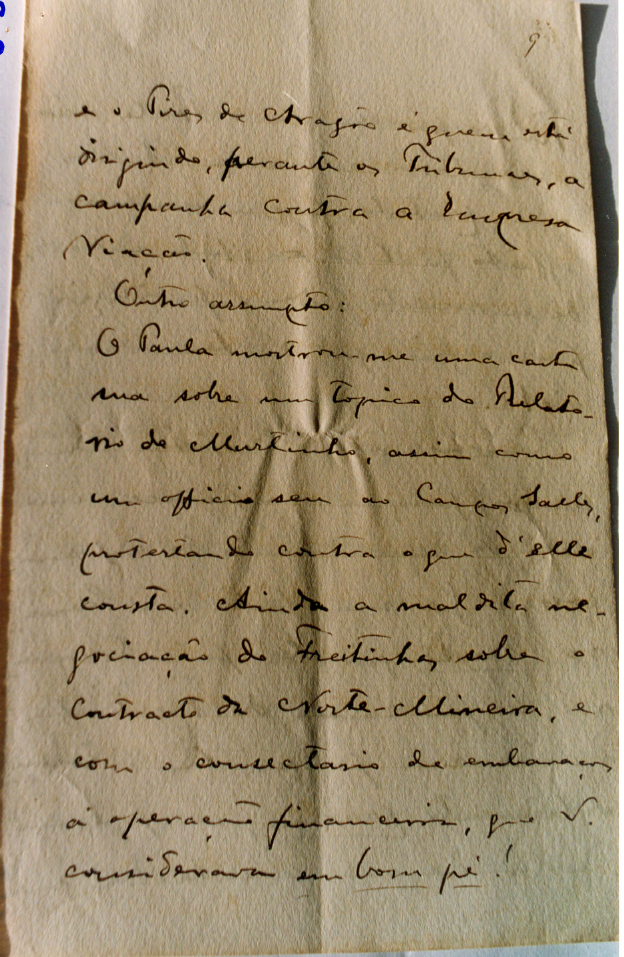 9
e o Pires de Aragão é quem está
dirigindo, perante os Tribunaes, a
campanha contra a Empresa
Viação.
Outro assumpto:
O Paula mostrou-me uma carta
sua sobre um topico do Relato-
rio do Murtinho, assim como
um officio seu ao Campos Salles,
protestando contra o que d'elle
consta. Ainda a maldita ne-
gociação do Freitinhas sobre o
Contracto da Norte-Mineira, e
com o consectario de embaraços
á operação financeira, que V.
considerava em bom pé!